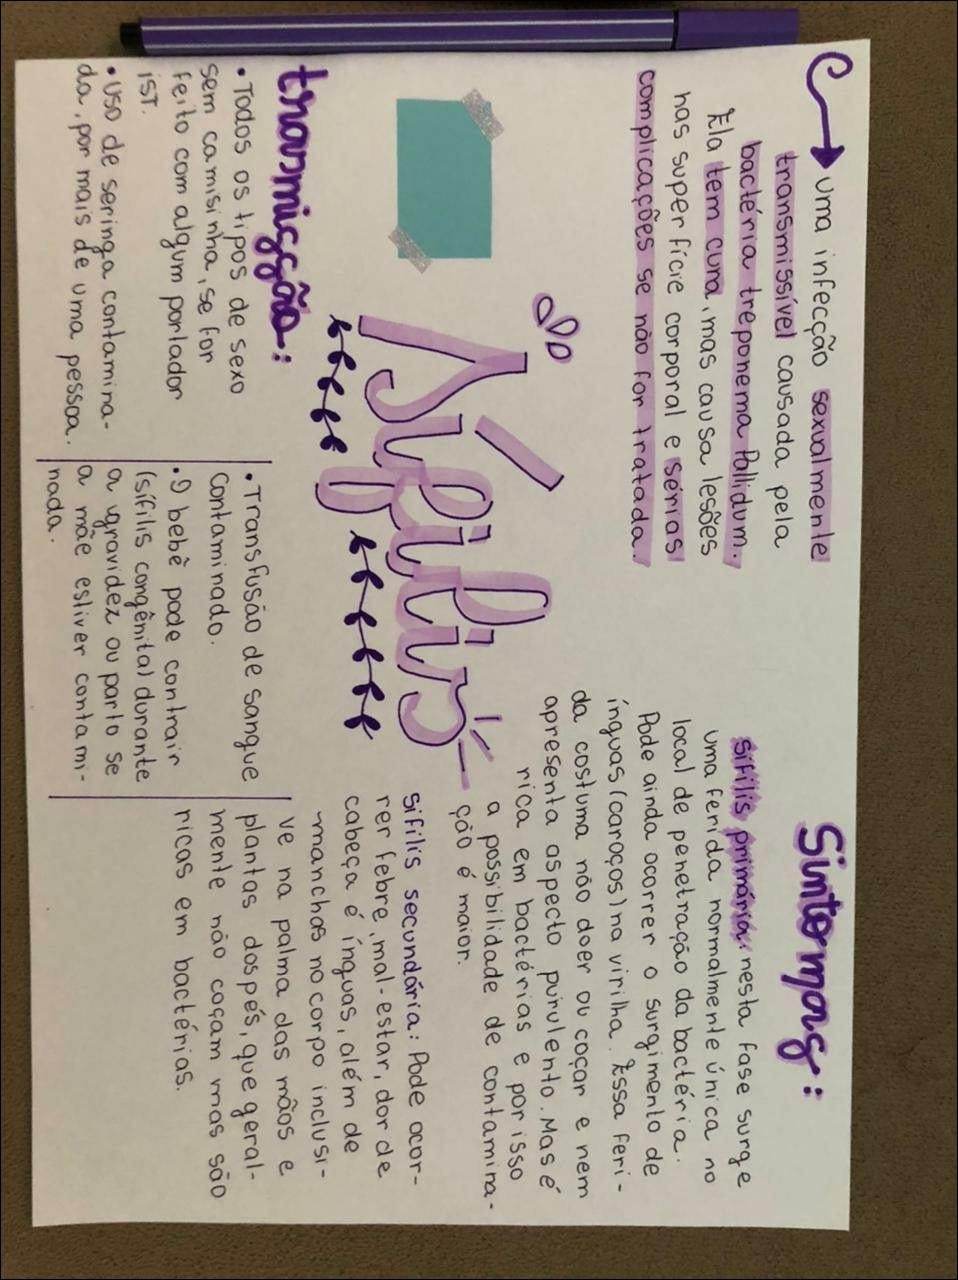 Sífilis
uma infecção sexualmente
transmissível causada pela
bactéria treponema Pallidum.
Ela tem cura, mas causa lesões
nas superfície corporal e sérias
complicações se não for tratada.
transmissão:
• Todos os tipos de sexo
sem camisinha, se for
feito com algum portador
IST.
• Uso de seringa contamina-
da, por mais de uma pessoa.
• Transfusão de sangue
Contaminado.
• O bebê pode contrair
(sífilis congênita) durante
a gravidez ou parto se
a mãe estiver contami-
nada.
Sintomas:
Sífilis primária: nesta fase surge
uma ferida normalmente única no
local de penetração da bactéria.
Pode ainda ocorrer o surgimento de
ínguas (caroços) na virilha. Essa feri-
da costuma não doer ou coçar e nem
apresenta aspecto purulento. Mas é
rica em bactérias e por isso
a possibilidade de contamina-
ção é maior.
Sífilis secundária: Pode ocor-
rer febre, mal-estar, dor de
cabeça é ínguas, além de
manchas no corpo inclusi-
ve na palma das mãos e
plantas dos pés, que geral-
mente não coçam mas são
ricas em bactérias.